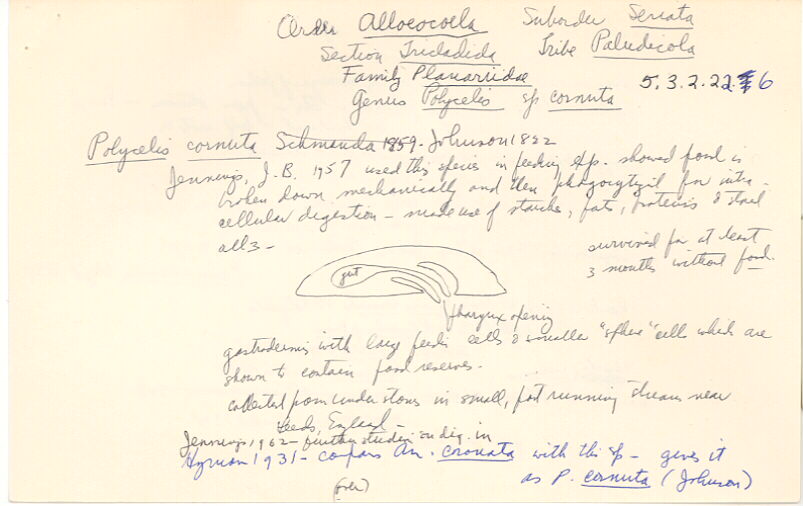 Order Alloeocoela Suborder Seriata
Section Tricladida Tribe Paludicola
Family Planariidae
Genus Polycelis sp cornuta
5.3.2.22.6
Polycelis cornuta Schmarda 1859. Johnson 1822
Jennings, J.B. 1957 used this species in feeding exp. showed food is
broken down mechanically and then phagocytized for intra-
cellular digestion - made use of starches, fats, proteins & stored
all 3 -
survived for at least
3 months without food.
gut
pharynx opening
gastrodermis with large feeding cells & smaller "sphere" cells which are
shown to contain food reserves.
Collected from under stones in small, fast running stream near
Leeds, England -
Jennings 1962 - further studies on dig. in
Hyman 1931 - compares An. coronata with this sp - gives it
as P. cornuta (Johnson)
(over)